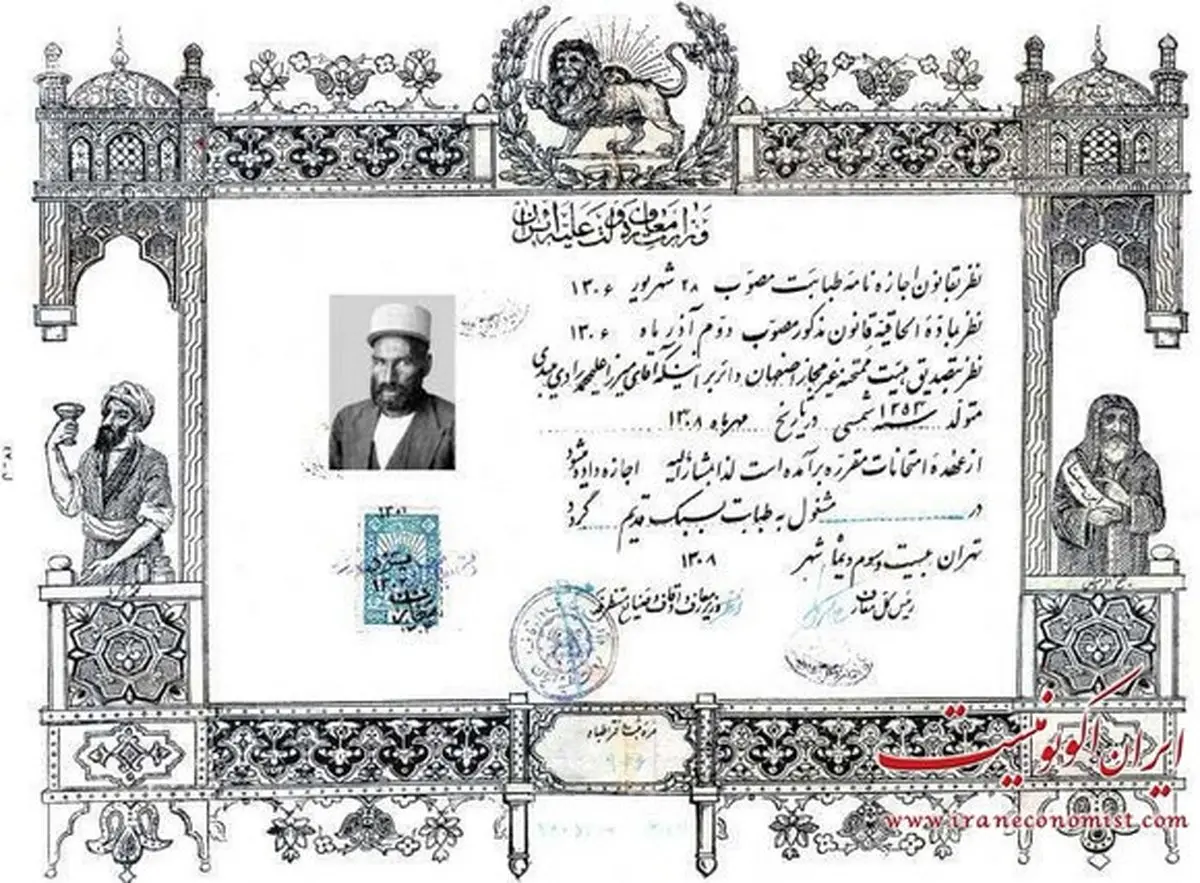 وزارت معارف دولت علیه ایران
نظر بقانون اجازه نامه طبابت مصوب ۲۸ شهریور ۱۳۰۶
نظر بمادهٔ الحاقیه قانون مذکور مصوب دوم آذر ماه ۱۳۰۶
نظر بتصدیق هیئت ممتحنه غیر مجاز اصفهان دائر بر اینکه آقای میرزا
متولد ۱۲۵۳ شمسی در تاریخ مهرماه ۱۳۰۸
از عهدهٔ امتحانات مقرره برآمده است لذا بمشارالیه اجازه داده میشود
در مشغول به طبابت بسبک قدیم گردد
تهران بیست و سوم دیماه شهر ۱۳۰۸
رئیس کل معارف
وزیر معارف و اوقاف و صنایع مستظرفه
نمره ثبت دفتر اطباء
ایران اکونومیست
www.iraneconomist.com